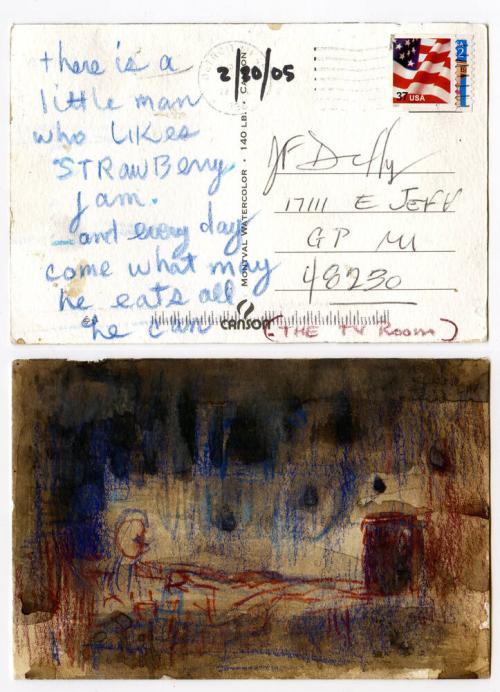 there is a
little man
who LIKes
STRawBerry
Jam.
and every day
come what may
he eats all
he can
2/20/05
MONTVAL WATERCOLOR • 140 LB. • CANSON
37 USA
JF Duffy
17111 E JEFF
GP MI
48230
CANSON
(THE TV ROOM)